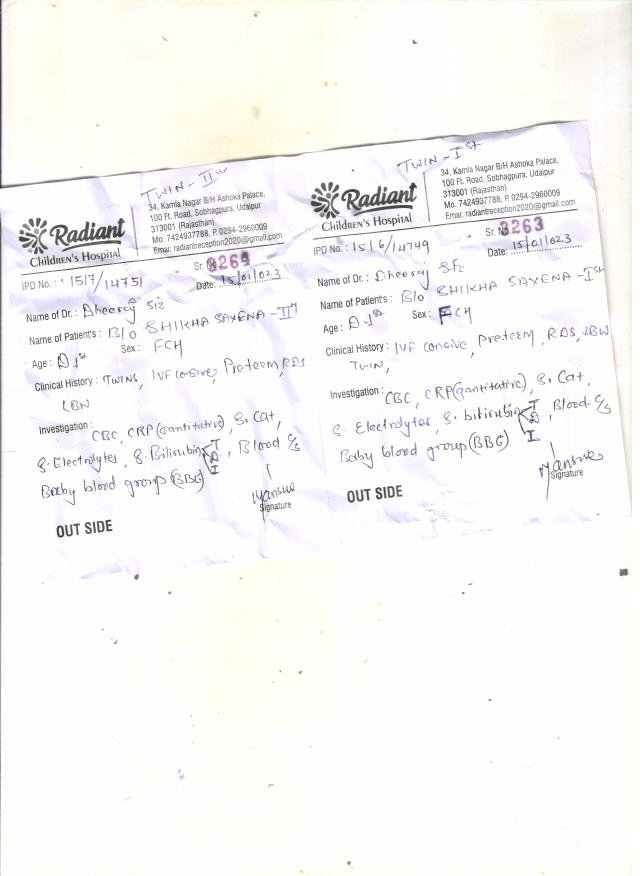 TWIN - II
Radiant
Children's Hospital
34, Kamla Nagar B/H Ashoka Palace,
100 Ft. Road, Sobhagpura, Udaipur
313001 (Rajasthan)
Mo. 7424937788, P. 0294-2960009
Emai: radiantreception2020@gmail.com
IPD No.: 1517/14751
Sr.
Date: 15/01/023
Name of Dr.: Dheeraj Sir
Name of Patient's: B/o SHIKHA SAXENA - II
Age: D1st Sex: FCH
Clinical History: TWINS, IVF consive, Preterm, RDS
LBW
Investigation: CBC, CRP (Qantitative), S. Cat,
S. Electrolytes, S. Bilirubin T D I, Blood C/S
Baby blood group (BBG)
Signature
OUT SIDE
TWIN - Ist
Radiant
Children's Hospital
34, Kamla Nagar B/H Ashoka Palace,
100 Ft. Road, Sobhagpura, Udaipur
313001 (Rajasthan)
Mo. 7424937788, P. 0294-2960009
Emai: radiantreception2020@gmail.com
IPD No.: 1516/14749
Sr. 3263
Date: 15/01/023
Name of Dr.: Dheeraj Sir
Name of Patient's: B/o SHIKHA SAXENA - Ist
Age: D1st Sex: FCH
Clinical History: IVF consive, Preterm, RDS, LBW
TWIN,
Investigation: CBC, CRP (Qantitative), S. Cat,
S. Electrolytes, S. bilirubin T D I, Blood C/S
Baby blood group (BBG)
Signature
OUT SIDE